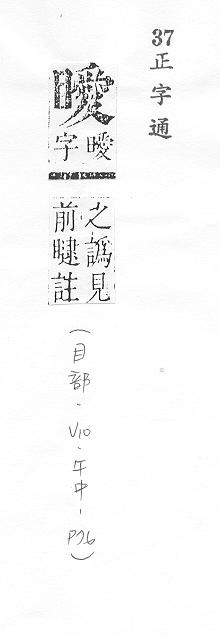 37
正字通
瞹
曖
字
之譌見
前註
(目部-V10-午中-P76)